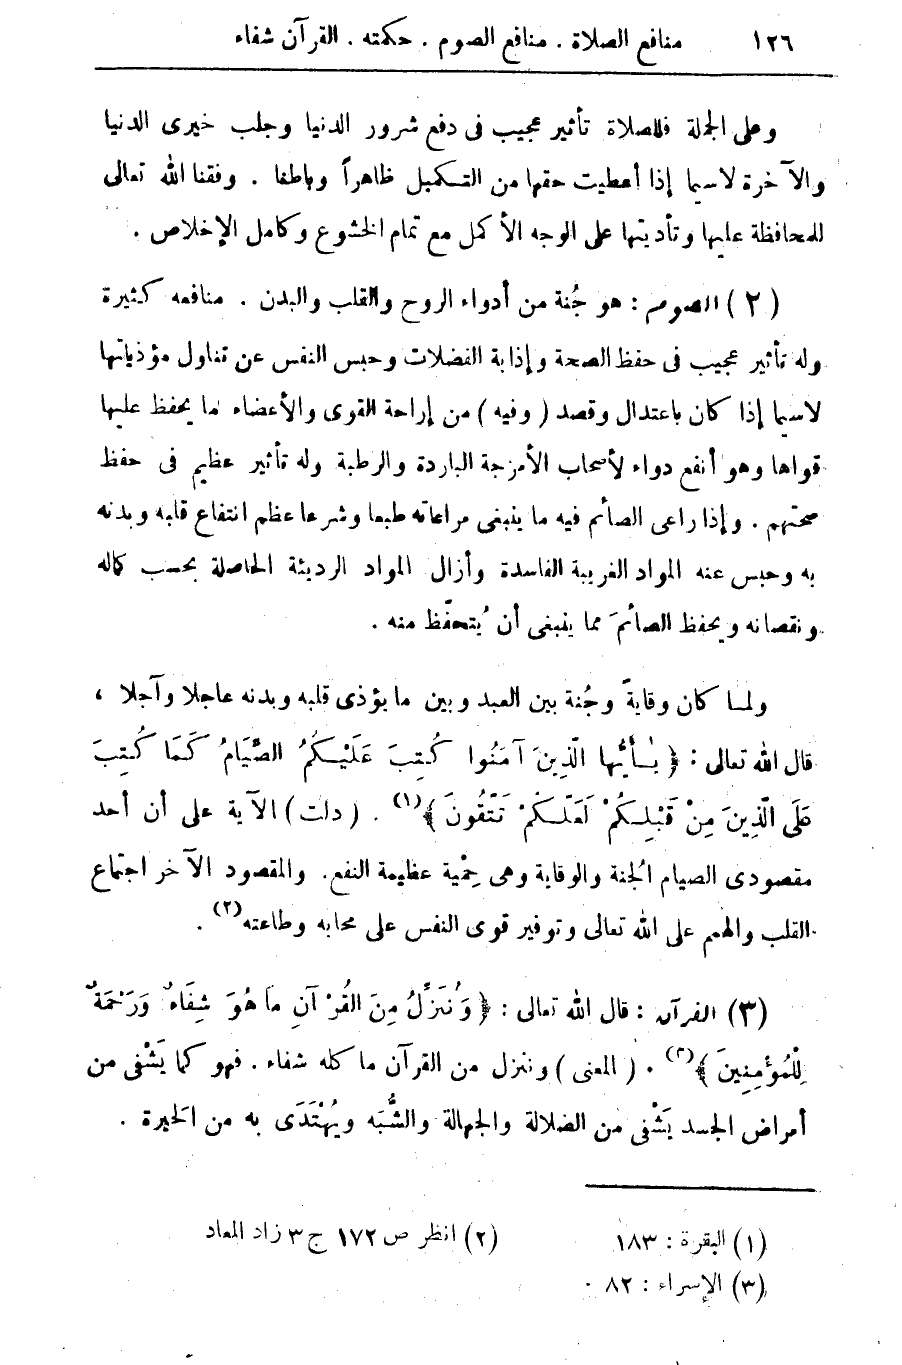 ١٢٦ منافع الصلاة . منافع الصوم . حكمته . القرآن شفاء
وعلى الجملة فللصلاة تأثير عجيب فى دفع شرور الدنيا وجلب خيرى الدنيا
والآخرة لاسيما إذا أعطيت حقها من التكميل ظاهراً وباطنا . وفقنا الله تعالى
للمحافظة عليها وتأديتها على الوجه الأكمل مع تمام الخشوع وكامل الإخلاص .
(٢) الصوم : هو جُنة من أدواء الروح والقلب والبدن . منافعه كثيرة
وله تأثير عجيب فى حفظ الصحة وإذابة الفضلات وحبس النفس عن تناول مؤذياتها
لاسيما إذا كان باعتدال وقصد (وفيه) من إراحة القوى والأعضاء ما يحفظ عليها
قواها وهو أنفع دواء لأصحاب الأمزجة الباردة والرطبة وله تأثير عظيم فى حفظ
صحتهم . وإذا راعى الصائم فيه ما ينبغى مراعاته طبعا وشرعا عظم انتفاع قلبه وبدنه
به وحبس عنه المواد الغريبة الفاسدة وأزال المواد الرديئة الحاصلة بحسب كماله
ونقصانه ويحفظ الصائمَ مما ينبغى أن يُتحفّظ منه .
ولما كان وقايةً وجُنة بين العبد وبين ما يؤذى قلبه وبدنه عاجلا وآجلا ،
قال الله تعالى : ﴿ يٰأَيُّها الّذِينَ آمَنُوا كُتِبَ عَلَيْكُمُ الصِّيَامُ كَمَا كُتِبَ
عَلَى الّذِينَ مِنْ قَبْلِكُمْ لَعَلّكُمْ تَتّقُونَ ﴾(١) . (دلت) الآية على أن أحد
مقصودى الصيام الجُنة والوقاية وهى حِمْية عظيمة النفع. والمقصود الآخر اجتماع
القلب والهمم على الله تعالى وتوفير قوى النفس على محابه وطاعته(٢) .
(٣) القرآن : قال الله تعالى : ﴿ وَنُنَزِّلُ مِنَ القُرْآنِ مَا هُوَ شِفَاءٌ وَرَحْمَةٌ
لِلْمُؤمِنِينَ ﴾(٣) . (المعنى) وننزل من القرآن ما كله شفاء . فهو كما يَشْفى من
أمراض الجسد يَشْفى من الضلالة والجهالة والشُّبَه ويُهْتَدَى به من الحَيرة .
(١) البقرة : ١٨٣ (٢) انظر ص ١٧٢ ج ٣ زاد المعاد
(٣) الإسراء : ٨٢ .